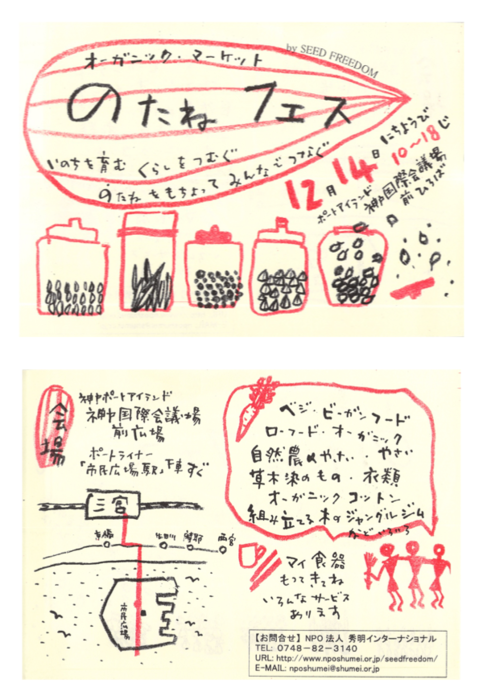 オーガニック・マーケット
by SEED FREEDOM
のたね フェス
いのちを育む くらしをつむぐ
のたねをもちよって みんなでつなぐ
12月14日 にちようび
10〜18じ
ポートアイランド
神戸国際会議場
前ひろば
会場
神戸ポートアイランド
神戸国際会議場
前広場
ポートライナー
「市民広場駅」下車すぐ
三宮
西宮
市民広場
ベジ・ビーガンフード
ローフード・オーガニック
自然農のやたい・やさい
草木染のもの・衣類
オーガニックコットン
組み立てる木のジャングルジム
などいろいろ
マイ食器
もってきてね
いろんなサービス
あります
【お問合せ】NPO法人 秀明インターナショナル
TEL: 0748-82-3140
URL: http://www.nposhumei.or.jp/seedfreedom/
E-MAIL: nposhumei@shumei.or.jp